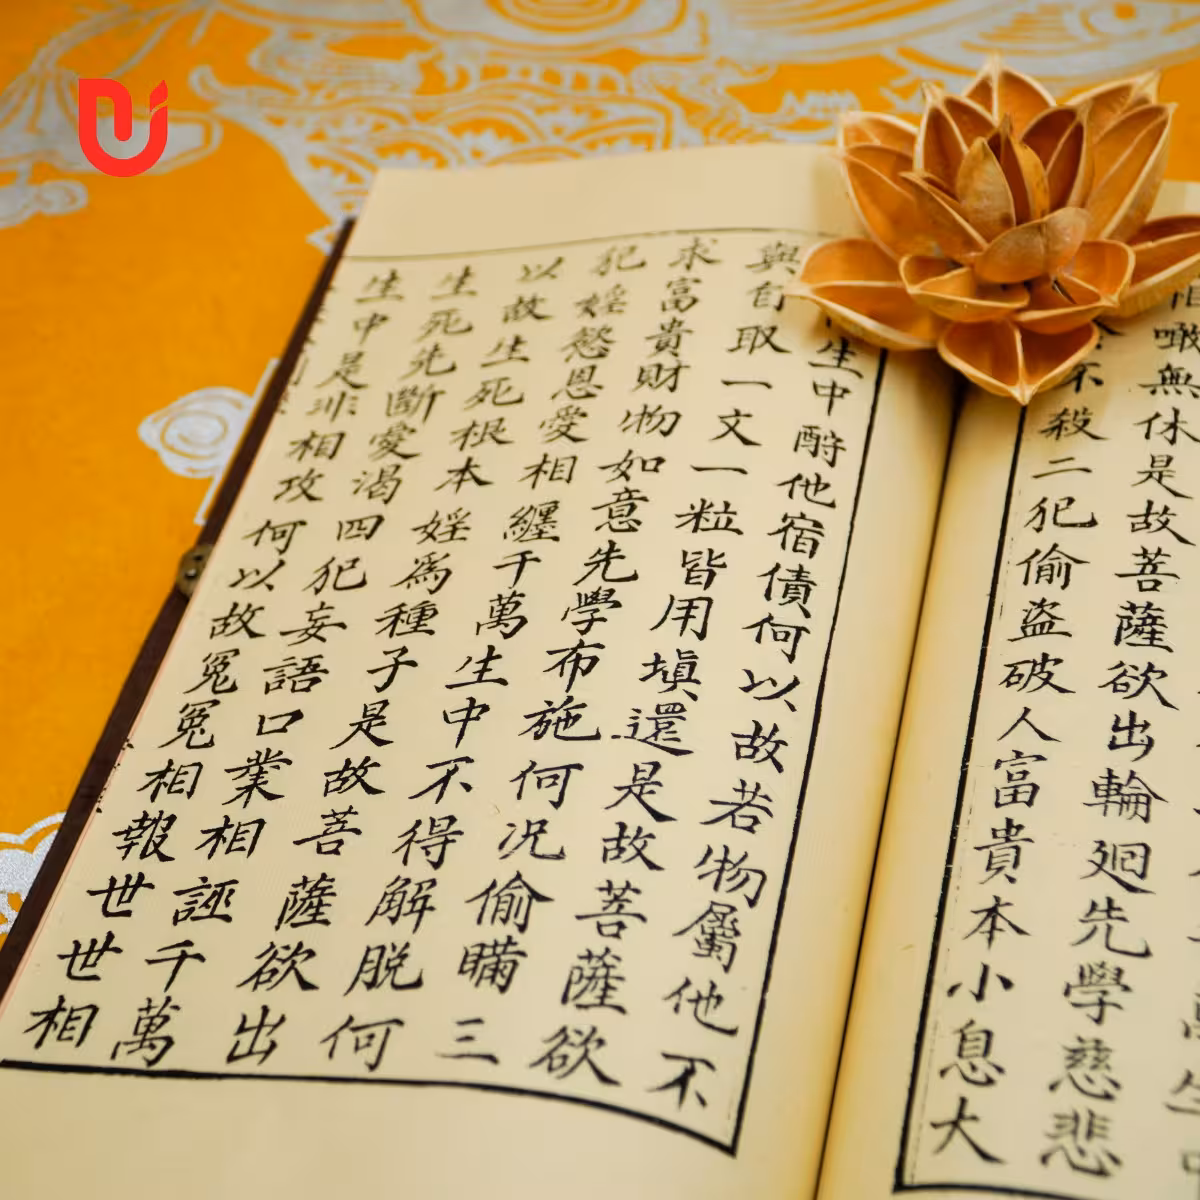 噉無休是故菩薩欲出輪廻先學慈悲
不殺二犯偷盜破人富貴本小息大
生中酧他宿債何以故若物屬他不
與自取一文一粒皆用填還是故菩薩欲
求富貴財物如意先學布施何况偷瞞三
犯婬慾恩愛相纏千萬生中不得解脫何
以故生死根本婬爲種子是故菩薩欲出
生死先斷愛渴四犯妄語口業相誣千萬
生中是非相攻何以故冤冤相報世世相